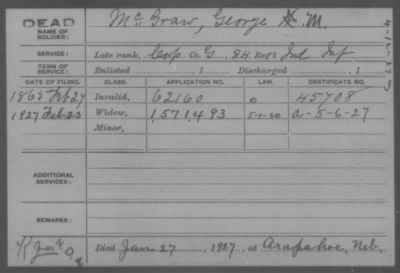 DEAD
NAME OF SOLDIER: McGraw, George M.
SERVICE: Late rank, Corp. Co. G, 84 Reg't Ind Inf
TERM OF SERVICE: Enlisted , 1 Discharged , 1
DATE OF FILING. CLASS. APPLICATION NO. LAW. CERTIFICATE NO.
1865 Feb 27 Invalid, 62160 45708
1927 Feb 23 Widow, 1571493 5-1-20 a-5-6-27
Minor,
ADDITIONAL SERVICES:
REMARKS:
Died Jan 27, 1927, at Arapahoe, Neb.